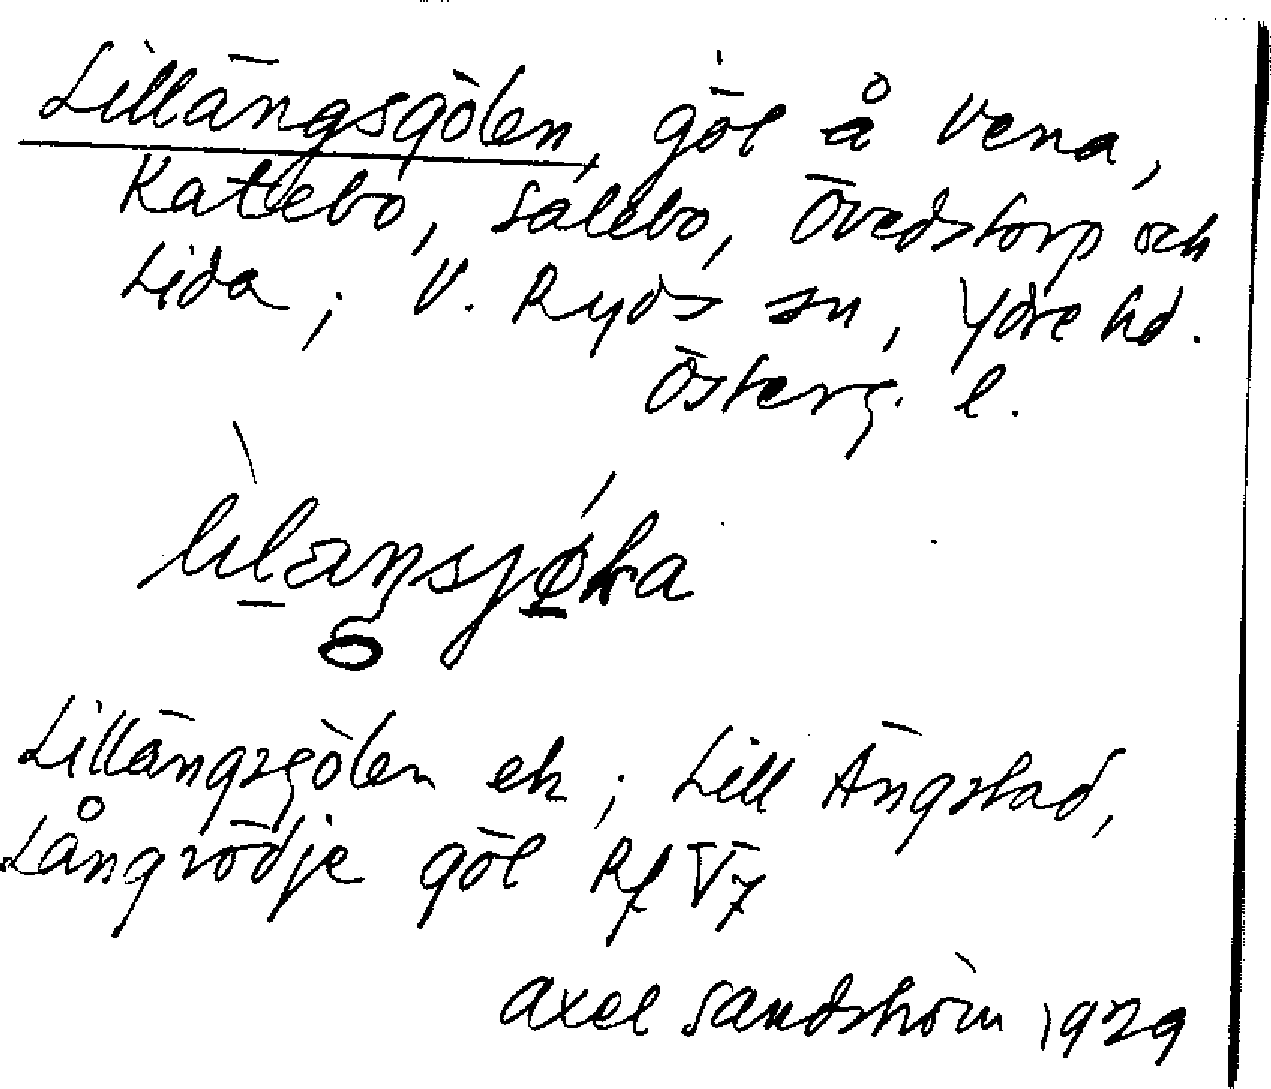 Lillängsgölen, göl å Vena,
Katebo, Salebo, Övedstorp och
Lida; V. Ryds sn, Ydre hd.
Österg. l.
Lillängsgölen ek; Lill Ängstad,
Långrödje göl Rf V7
Axel Sandström 1929